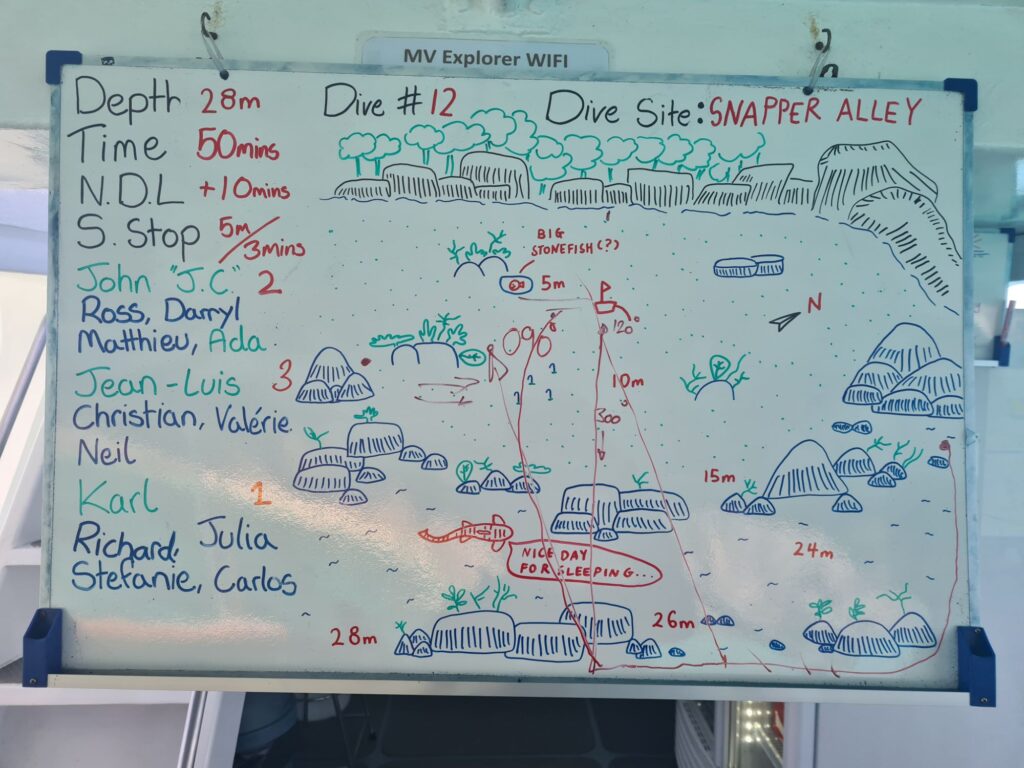 MV Explorer WIFI
Depth 28m
Dive #12
Dive Site: SNAPPER ALLEY
Time 50mins
N.D.L +10mins
S. Stop 5m/3mins
John "J.C" 2
Ross, Darryl
Matthieu, Ada
Jean-Luis 3
Christian, Valérie
Neil
Karl 1
Richard, Julia
Stefanie, Carlos
BIG
STONEFISH(?)
5m
N
120°
10m
300
15m
24m
NICE DAY
FOR SLEEPING...
28m
26m